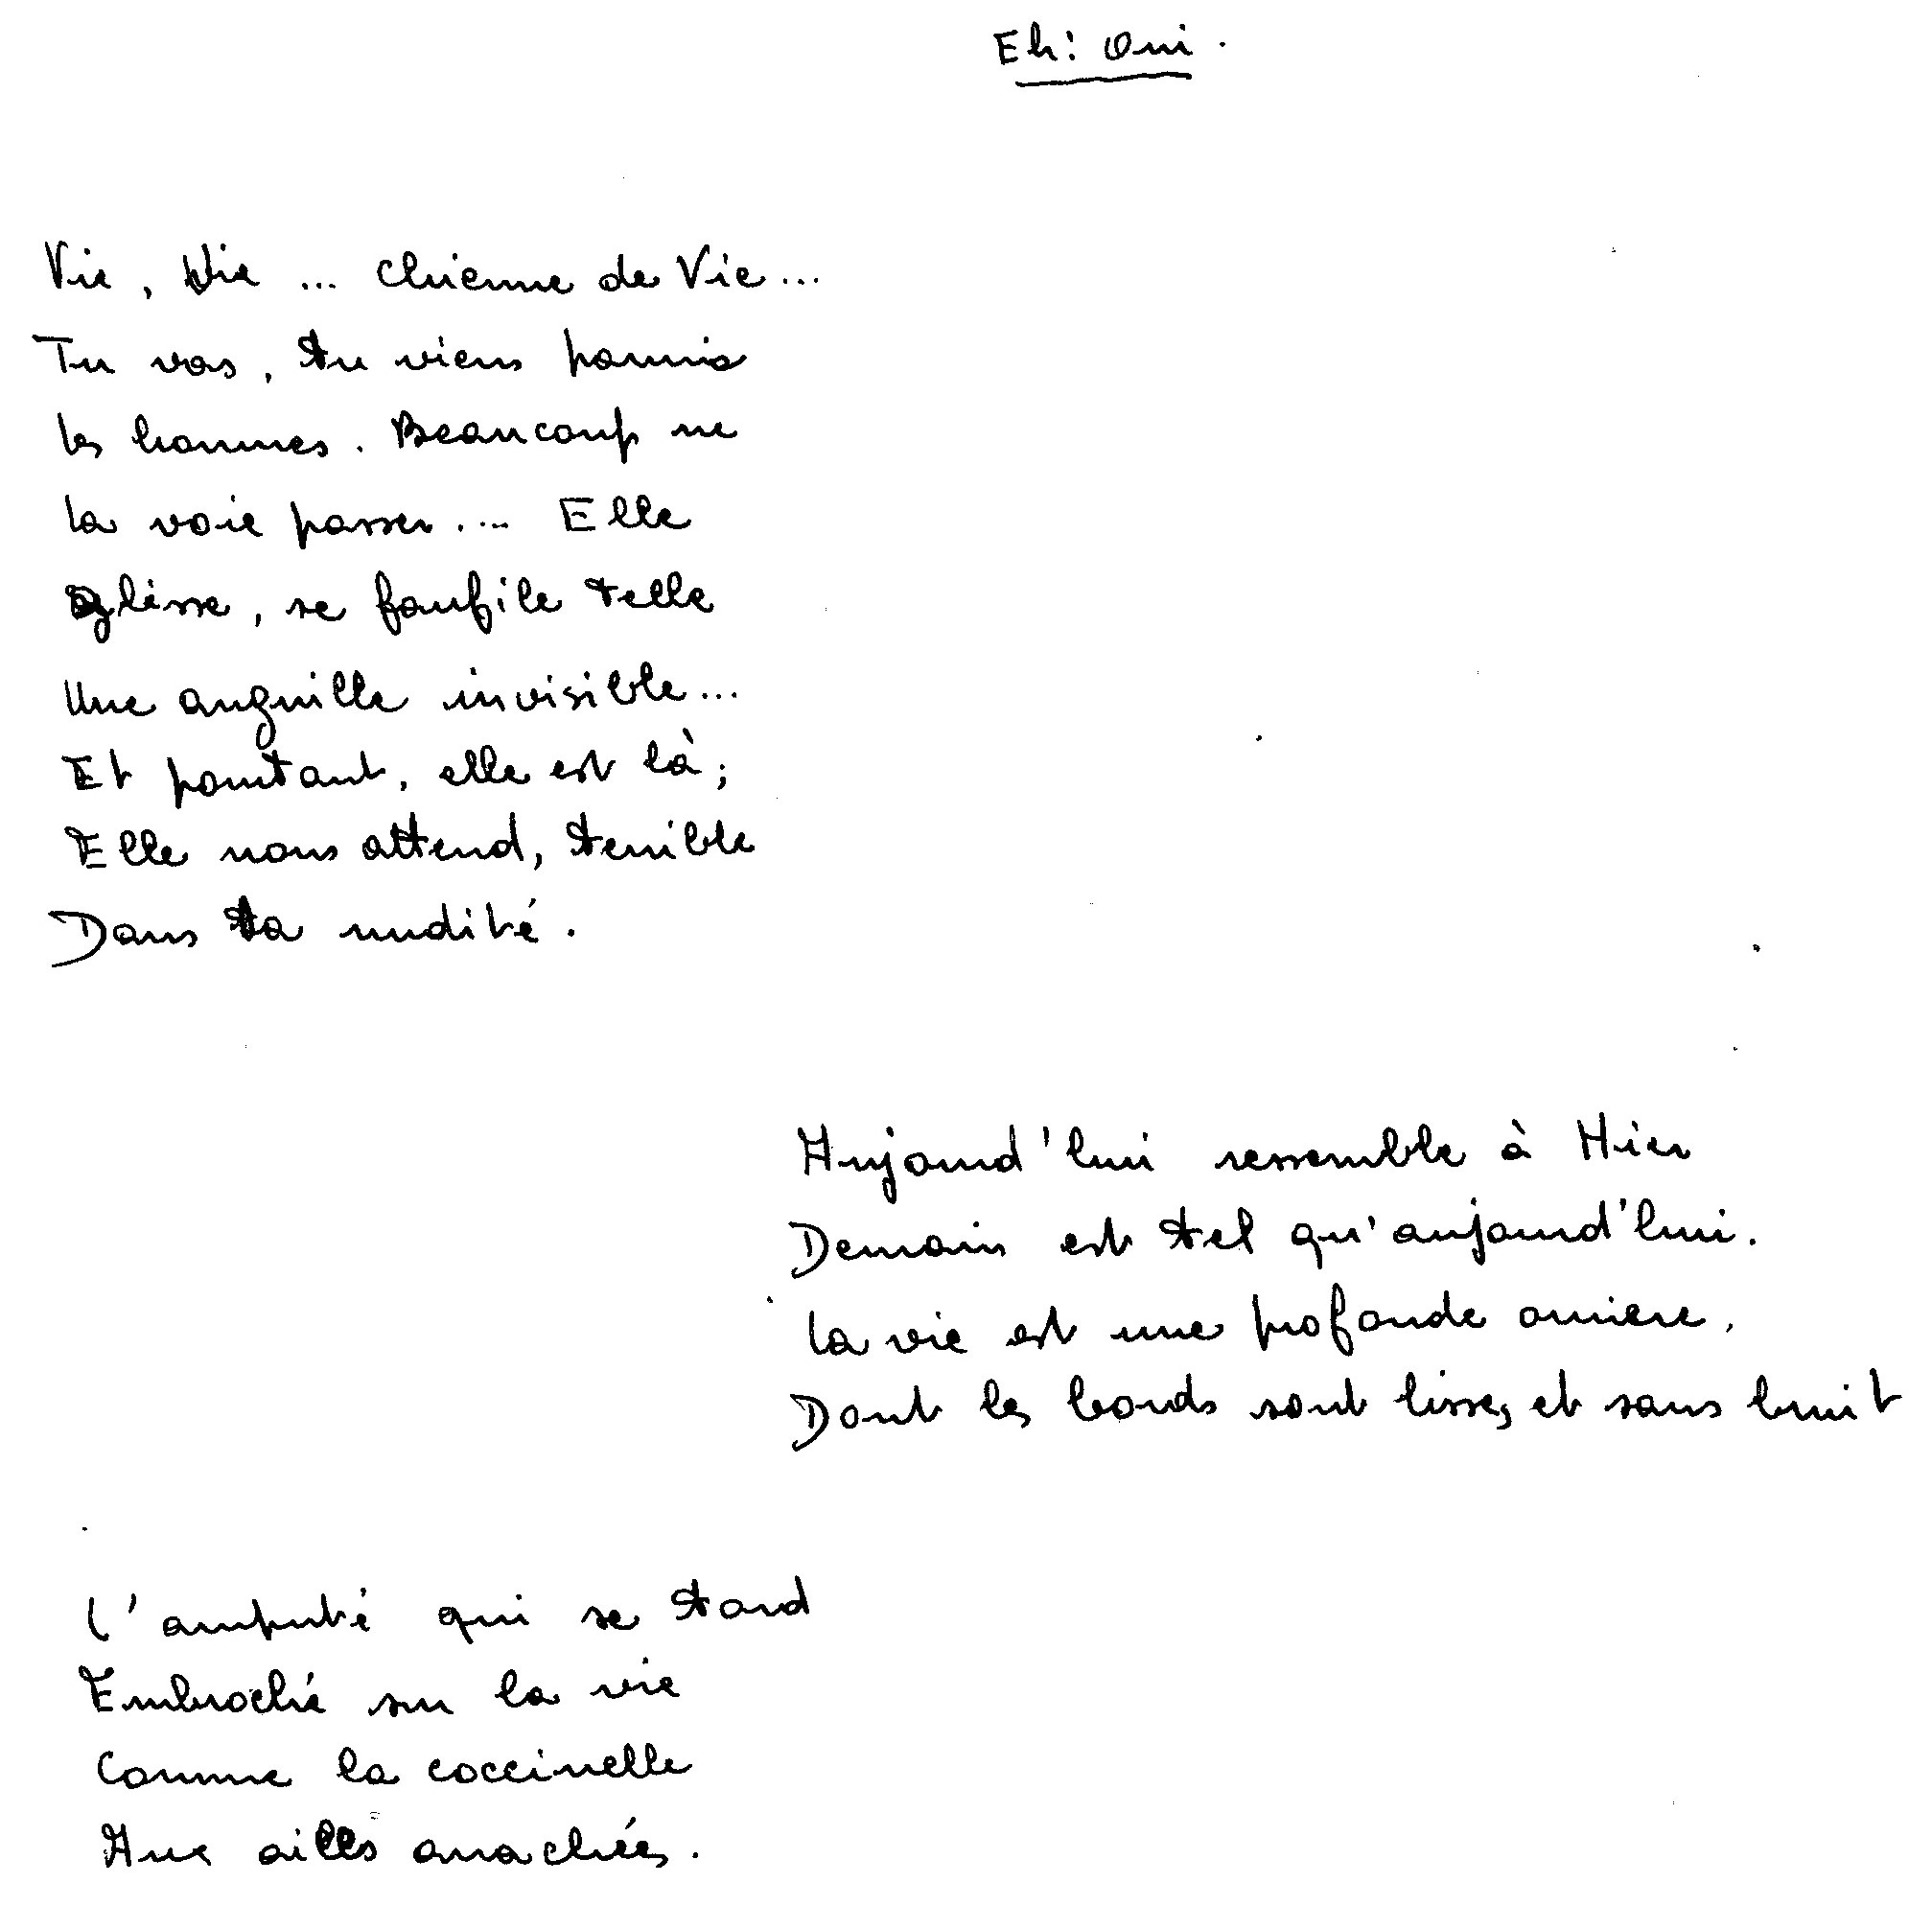 Eh! Oui.
Vie, Vie ... Chienne de Vie...
Tu vas, tu viens parmis
les hommes. Beaucoup ne
la voie passer.... Elle
glisse, se faufile telle
Une anguille invisible...
Et pourtant, elle est là;
Elle nous attend, terrible
Dans ta nudité.
Aujourd'hui ressemble à Hier
Demain est tel qu'aujourd'hui.
La vie est une profonde orniere.
Dont les bords sont lisses et sans bruit
L'amputé qui se tord
Embroché sur la vie
Comme la coccinelle
Aux ailes arrachées.